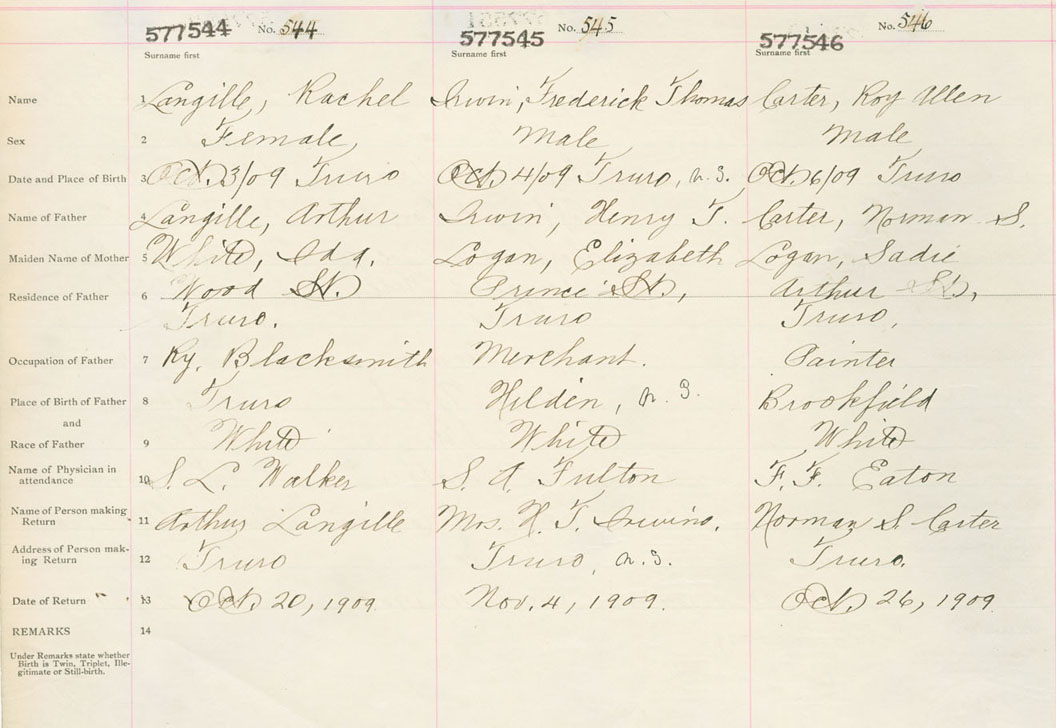 577544 No. 544 577545 No. 545 577546 No. 546
Surname first Surname first Surname first
Name 1 Langille, Rachel Irwin, Frederick Thomas Carter, Roy Allen
Sex 2 Female Male Male
Date and Place of Birth 3 Oct. 3/09 Truro Oct. 4/09 Truro, N.S. Oct. 6/09 Truro
Name of Father 4 Langille, Arthur Irwin, Henry T. Carter, Norman S.
Maiden Name of Mother 5 White, Ida. Logan, Elizabeth Logan, Sadie
Residence of Father 6 Wood St. Prince St., Arthur St.,
Truro. Truro Truro,
Occupation of Father 7 Ry. Blacksmith Merchant. Painter
Place of Birth of Father 8 Truro Hilden, N.S. Brookfield
and
Race of Father 9 White White White
Name of Physician in
attendance 10 S. L. Walker S. A. Fulton F. F. Eaton
Name of Person making
Return 11 Arthur Langille Mrs. H. T. Irwin. Norman S. Carter
Address of Person mak-
ing Return 12 Truro Truro, N.S. Truro.
Date of Return 13 Oct. 20, 1909 Nov. 4, 1909. Oct. 26, 1909
REMARKS 14
Under Remarks state whether
Birth is Twin, Triplet, Ille-
gitimate or Still-birth.